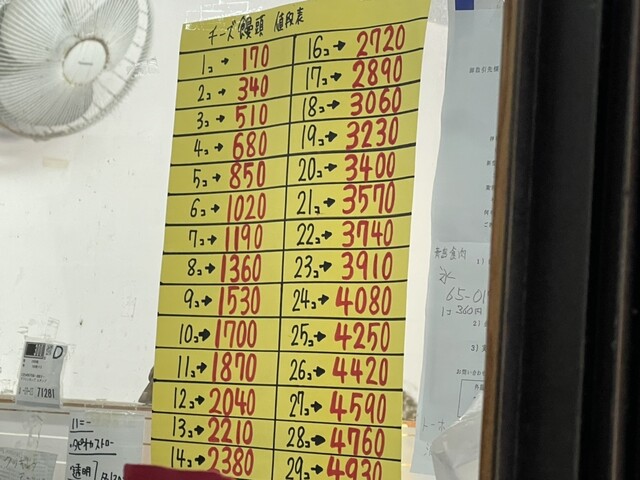 チーズ饅頭 値段表
1コ→170
2コ→340
3コ→510
4コ→680
5コ→850
6コ→1020
7コ→1190
8コ→1360
9コ→1530
10コ→1700
11コ→1870
12コ→2040
13コ→2210
14コ→2380
16コ→2720
17コ→2890
18コ→3060
19コ→3230
20コ→3400
21コ→3570
22コ→3740
23コ→3910
24コ→4080
25コ→4250
26コ→4420
27コ→4590
28コ→4760
29コ→4930
氷
65-01
1コ360円
1)
2)
3)
D
71281
ストロー
透明